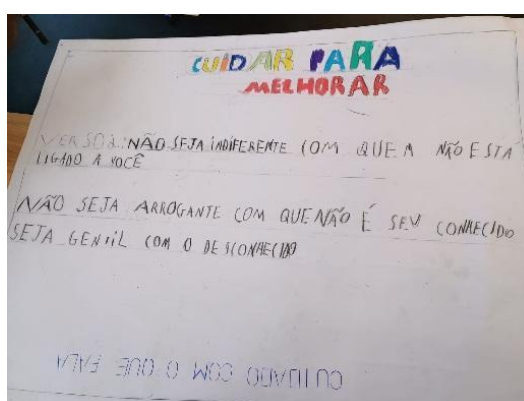 CUIDAR PARA
MELHORAR
VERSO 2: NÃO SEJA INDIFERENTE COM QUEM NÃO ESTA
LIGADO A VOCÊ
NÃO SEJA ARROGANTE COM QUE NÃO É SEU CONHECIDO
SEJA GENTIL COM O DESCONHECIDO
CUIDADO COM O QUE FALA